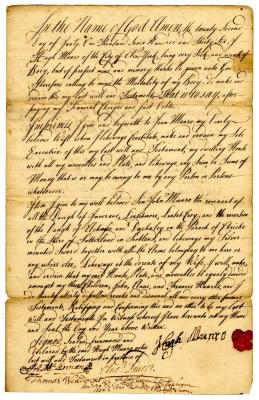 In the Name of God Amen, the twenty Second
Day of July, One Thousand Seven Hundred and Thirty Six, I
Hugh Munro of the City of New York, being very Sick and weak of
Body, but of perfect mind and memory, thanks be given unto God,
Therefore calling to mind the Mortality of my Body, do make and
ordain this my last will and Testament, That is to say, after
paying of Funeral Charges and just Debts.
Imprimis, I give and bequeath to Jean Munro my dearly
beloved Wife whom I likeways constitute, make and ordain my Sole
Executrix of this my last will and Testament, my dwelling House
with all my moveables and Plate, and likeways, any Sum or Sums of
Money that is or may be owing to me by any Person or Persons
whatsoever.
Item I give to my well beloved Son John Munro the remnant of
all the Dough of
of the Dough of and in the Parish of
the Shire of Sutherland in Scotland, and likeways my Silver
mounted Sword together with all the Arms belonging to me here or
any where else, Likeways at the decease of my Wife, I will, make
and ordain that my said House, Plate, and moveables be equally divided
amongst my three Children, John, Anne, and Frances Munro, and I
do hereby utterly disallow, revoke and disannul all and every other former
Testaments, Ratifying and Confirming this and no other to be my last
Will and Testament. In Witness whereof I have hereunto set my Hand
and Seal the Day and Year above Written.
Signed, Sealed, pronounced and
declared by the said Hugh Munro as his
last will and Testament in presence of
Hugh Munro
Thomas